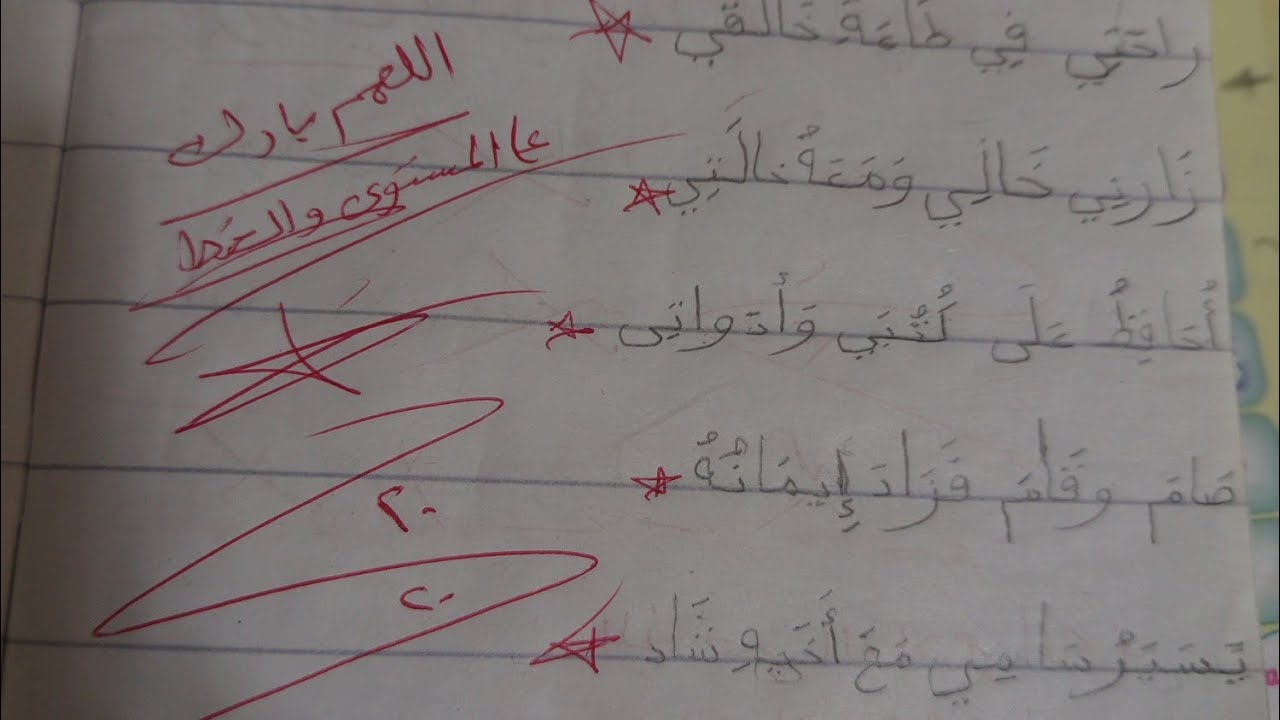 رَاحَتِي فِي طَاعَةِ خَالَقِي
زَارَنِي خَالِي وَمَعَهُ خَالَتِي
أُحَافِظُ عَلَى كُتُبَي وَأَدَواتِى
صَامَ وقَامَ فَزَادَ إِيمَانُهُ
يَسَيَرُ سَامِي مَعَ أَخَيهِ شَاد
اللهم بارك
عالمستوى والخط
٢٠
٢٠